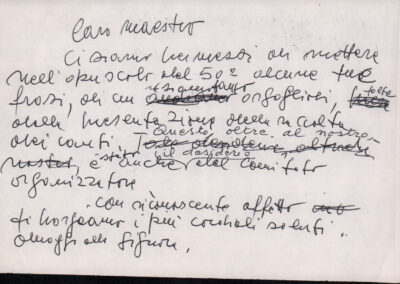 Caro maestro
Ci siamo permessi di mettere
nell'opuscolo del 50º alcune tue
frasi, di cui andiamo orgogliosi, tolte
dalla presentazione della raccolta
dei canti. Questo oltre al nostro
è stato il desiderio anche del Comitato
organizzatore
con riconoscente affetto
ti porgiamo i più cordiali saluti.
omaggi alla Signora.